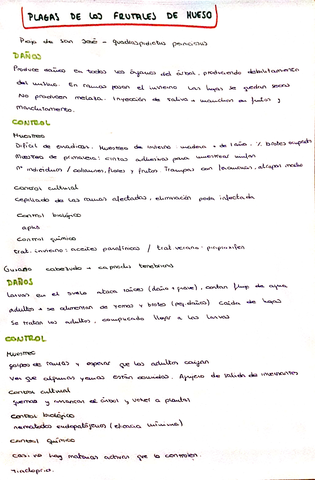 PLAGAS DE LOS FRUTALES DE HUESO
Piojo de San José - quadraspidiotus perniciosus
DAÑOS
Produce daños en todos los órganos del árbol, produciendo debilitamiento
del mismo. En ramas pasan el invierno. Las hojas se quedan secas
No producen melaza. Inyección de saliva → manchas en frutos y
marchitamiento.
CONTROL
MUESTREO
Difícil de erradicar. Muestreo de invierno: madera + de 1 año. % brotes ocupados
Muestreo de primavera: cintas adhesivas para muestrear
nº individuos / colonias, flores y frutos. Trampas con feromonas, atrapas macho
Control cultural
cepillado de las ramas afectadas, eliminación poda infectada
Control biológico
Control químico
trat. invierno: aceites parafínicos / trat verano: piriproxifen
Gusano cabezudo → capnodis tenebrionis
DAÑOS
Larvas en el suelo ataca raíces (daño + grave), cortan flujo de agua
adultos → se alimentan de yemas y brotes (peq. daños) caída de hojas
Se tratan los adultos, complicado llegar a las larvas
CONTROL
MUESTREO
golpeo de ramas y esperar que los adultos caigan
Ver que algunas yemas están comidas. Agujero de salida de
Control cultural
quemar y arrancar el árbol y volver a plantar
Control biológico
nematodos endopatógenos (eficacia mínima)
Control químico
Casi no hay materias activas que lo controlen.